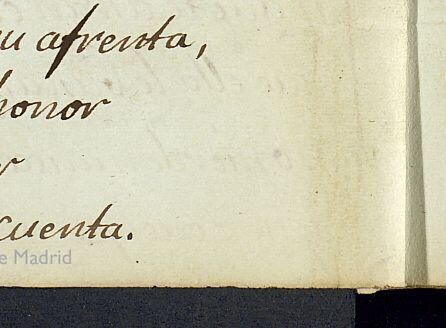 su afrenta,
honor
r
cuenta.
e Madrid